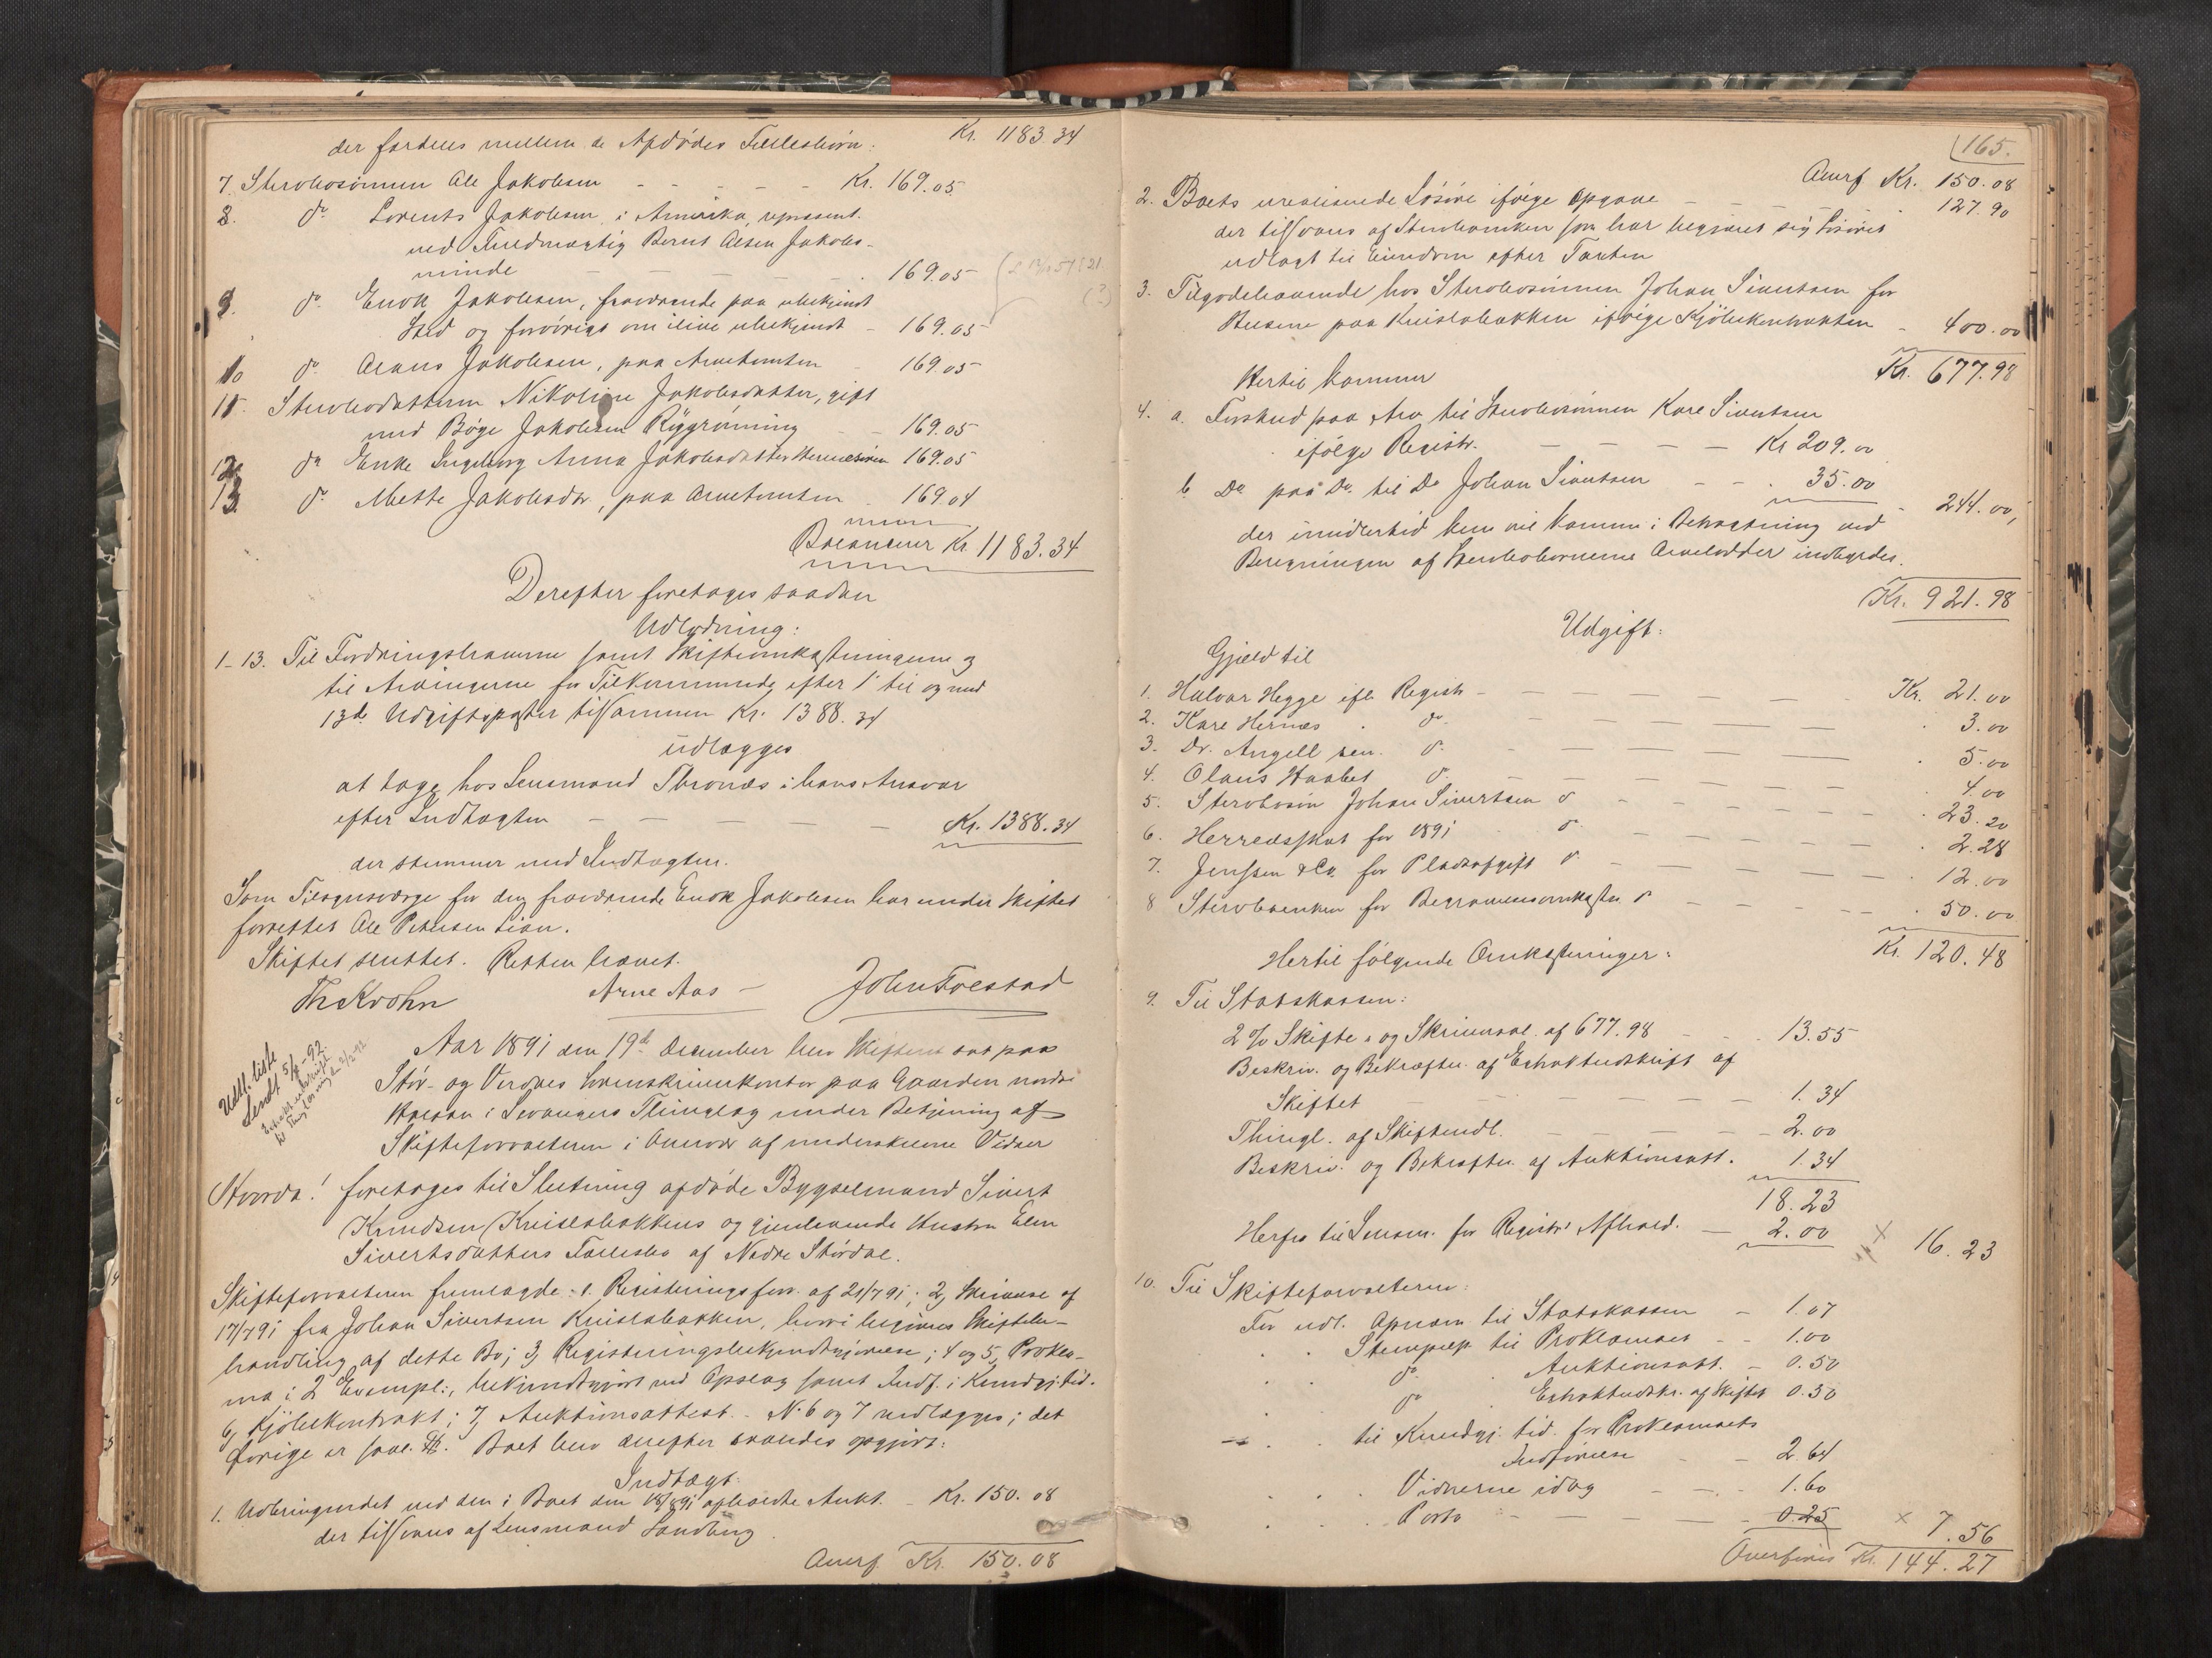 der fordeles mellem de Afdødes Fællesbørn: Kr. 1183.34
7. Sterbosønnen Ole Jakobsen - - - - - Kr. 169.05
8. do Lorents Jakobsen i Amerika, repræsent.
ved Fuldmægtig Bernt Olsen Jakobs-
minde - - - - - 169.05
9. do Enok Jakobsen, fraværende paa ubekjendt
Sted og forøvrigt om ilive ubekjendt - 169.05
10 do Olaus Jakobsen, paa Arvetomten - 169.05
11. Sterbodatteren Nikoline Jakobsdatter, gift
med Børge Jakobsen Ryggrønning - - 169.05
12. do Enke Ingeborg Anna Jakobsdatter 169.05
13. do Mette Jakobsdtr, paa Arvetomten - 169.04
Balancerer Kr. 1183.34
Derefter foretoges saadan
Udlodning:
1-13. Til Fordringshaverne samt Skifteomkostningerne og
til Arvingerne for Tilkommende efter 1ste til og med
13de Udgiftsposter tilsammen Kr. 1388.34
udlægges
at tage hos Lensmand Thronæs i hans Ansvar
efter Indtægten - - - - Kr. 1388.34
der stemmer med Indtægten.
Som Tilsynsværge for den fraværende Enok Jakobsen har under Skiftet
forrettet Ole Petersen Lian.
Skiftet sluttet. Retten hævet.
Th Krohn Arne Aas - John Forstad
Udl. liste
sendt 5/1-92.
Aar 1891 den 19de December blev Skifteret sat paa
Stør- og Verdals Sorenskriverkontor paa Gaarden nordre
Halsan i Levangers Thinglag under Betjening af
Skifteforvalteren i Overvær af underskrevne Vidner
Hvorda! foretoges til Slutning afdøde Bygselmand Sivert
Knudsen Kvislabakkens og gjenlevende Hustru Elen
Sivertsdatters Fællesbo af Nedre Størdal.
Skifteforvalteren fremlagde: 1. Registreringsforr. af 21/7 91; 2, Skrivelse af
17/7 91 fra Johan Sivertsen Kvislabakken, hvori begjæres Skiftebe-
handling af dette Bo; 3, Registreringsbekjendtgjørelse; 4 og 5, Prokla-
ma i 2 Exempl., bekjendtgjort ved Opslag samt Indf. i Kundgj.tid.
6, Kjøbekontrakt; 7, Auktionsattest. - No 6 og 7 vedlægges; det
øvrige er saal. Boet blev derefter saaledes opgjort:
Indtægt:
1. Udbringendet ved den i Boet den 18/8 91 afholdte Aukt. - Kr. 150.08
der tilsvares af Lensmand Sandberg.
Overf. Kr. 150.08
165.
Overf Kr. 150.08
2. Boets urealiserede Løsøre ifølge Opgave - - - - 127.90
der tilsvares af Sterboenken som har begjæret sig Løsøret
udlagt til Eiendom efter Taxten
3. Tilgodehavende hos Sterbosønnen Johan Sivertsen for
Husene paa Kvislabakken ifølge Kjøbekontrakten - 400.00
Kr. 677.98
Hertil kommer
4. a. Forskud paa Arv til Sterbosønnen Kare Sivertsen
ifølge Registr. - - - - Kr 209.00
b Do paa Do. til Do Johan Sivertsen - - 35.00 - 244.00,
der imidlertid kun vil komme i Betragtning ved
Beregningen af Sterbobørnenes Arvelodder indbyrdes.
Kr. 921.98
Udgift:
Gjæld til
1. Halvor Hegge ifl. Registr - - - - - Kr. 21.00
2. Kare Hernæs . do. - - - - - 3.00
3. Dr. Angell sen. do. - - - - - 5.00
4. Olaus Haabet do. - - - - - 4.00
5. Sterbosøn Johan Sivertsen do - - - - 23.20
6. Herredsskat for 1891 do - - - - 2.28
7. Jenssen & Co. for Pladsafgift do. - - - - 12.00
8 Sterboenken for Begravelsesomkostn. do - - - - 50.00
Kr. 120.48
Hertil følgende Omkostninger:
9. Til Statskassen:
2 % Skifte- og Skriversal. af 677.98 - - 13.55
Beskriv. og Bekræftn. af Extraktudskrift af
Skiftet - - - - - 1.34
Thingl. af Skifteudl. - - - - - 2.00
Beskriv. og Bekræftn. af Auktionsatt. - 1.34
18.23
Herfra til Lensm. for Registr. Afhold. - 2.00 × 16.23
10. Til Skifteforvalteren:
For udl. Opnavn til Statskassen - 1.07
. . Stempelp. til Proklamaet - - 1.00
. . do . Auktionsatt. - 0.50
. . do . Extraktudskr. af Skiftet 0.50
. . til Kundgj. tid. for Proklamaets
Indførelse - - 2.64
. . . Vidnerne idag - - 1.60
. . . Porto - - - - 0.25 × 7.56
Overføres Kr. 144.27